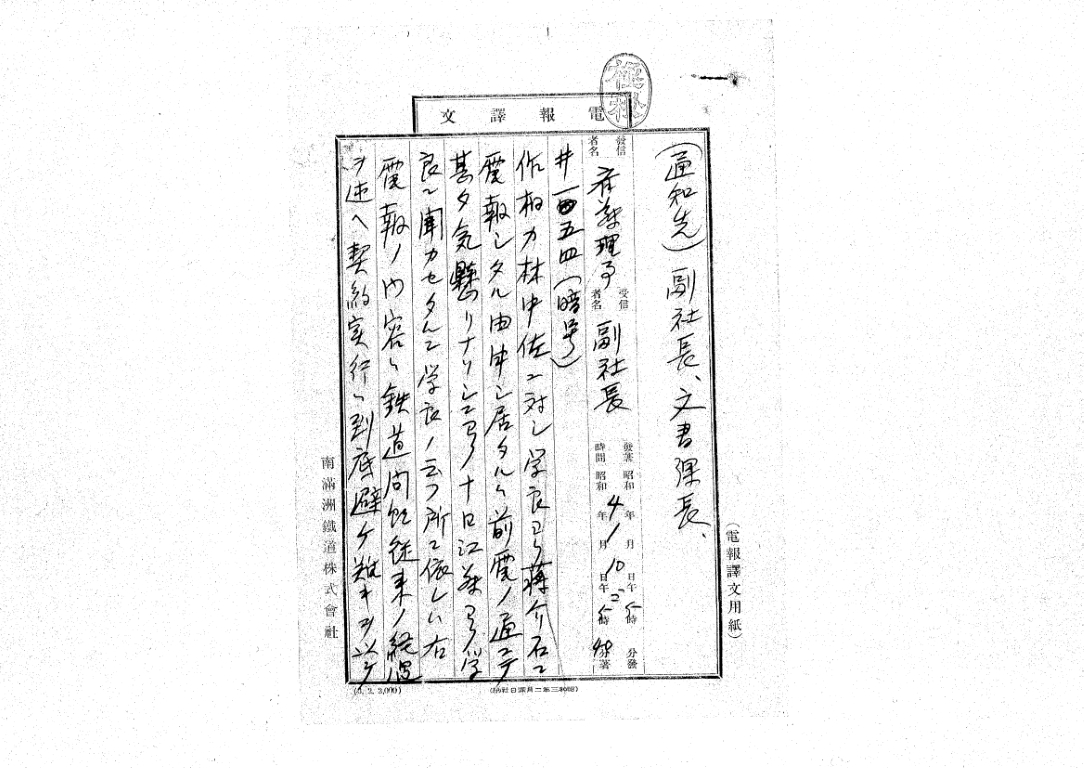 極秘
電報譯文
(通知先)副社長、文書課長、
發信者名 斉藤理事 受信者名 副社長 發著時間 昭和4年1月10日午 5時 分發 昭和 年 月 日午后5時40分著
井一〇五四(暗号)
作相カ林中佐ニ対シ学良ヨリ蒋介石ニ
電報シタル由申シ居タルハ前電ノ通ニテ
甚タ気懸リナリシニヨリ十日江藤ヨリ学
良ニ聞カセタルニ学良ノ云フ所ニ依レハ右
電報ノ内容ハ鉄道問題従来ノ経過
ヲ述ヘ契約実行ハ到底避ケ難キヲ以テ
南滿洲鐵道株式會社
(電報譯文用紙)
(3. 2. 3,000)